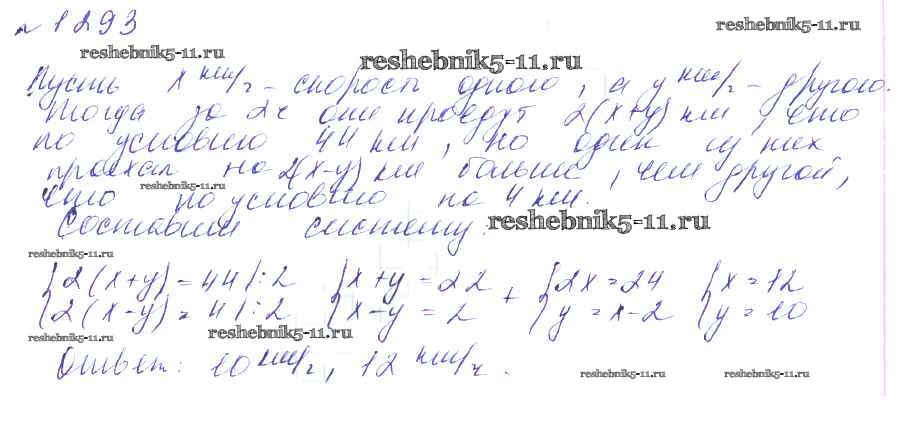 № 1293
reshebnik5-11.ru
reshebnik5-11.ru
reshebnik5-11.ru
Пусть х км/ч - скорость одного, а у км/ч - другого.
Тогда за 2ч они проедут 2(х+у) км, что
по условию 44 км, но один из них
проехал на 2(х-у) км больше, чем другой,
reshebnik5-11.ru
что по условию на 4 км.
Составим систему:
reshebnik5-11.ru
reshebnik5-11.ru
{2(х+у)=44|:2 {х+у=22 + {2х=24 {х=12
{2(х-у)=4|:2 {х-у=2 {у=х-2 {у=10
reshebnik5-11.ru
reshebnik5-11.ru
Ответ: 10 км/ч, 12 км/ч.
reshebnik5-11.ru
reshebnik5-11.ru